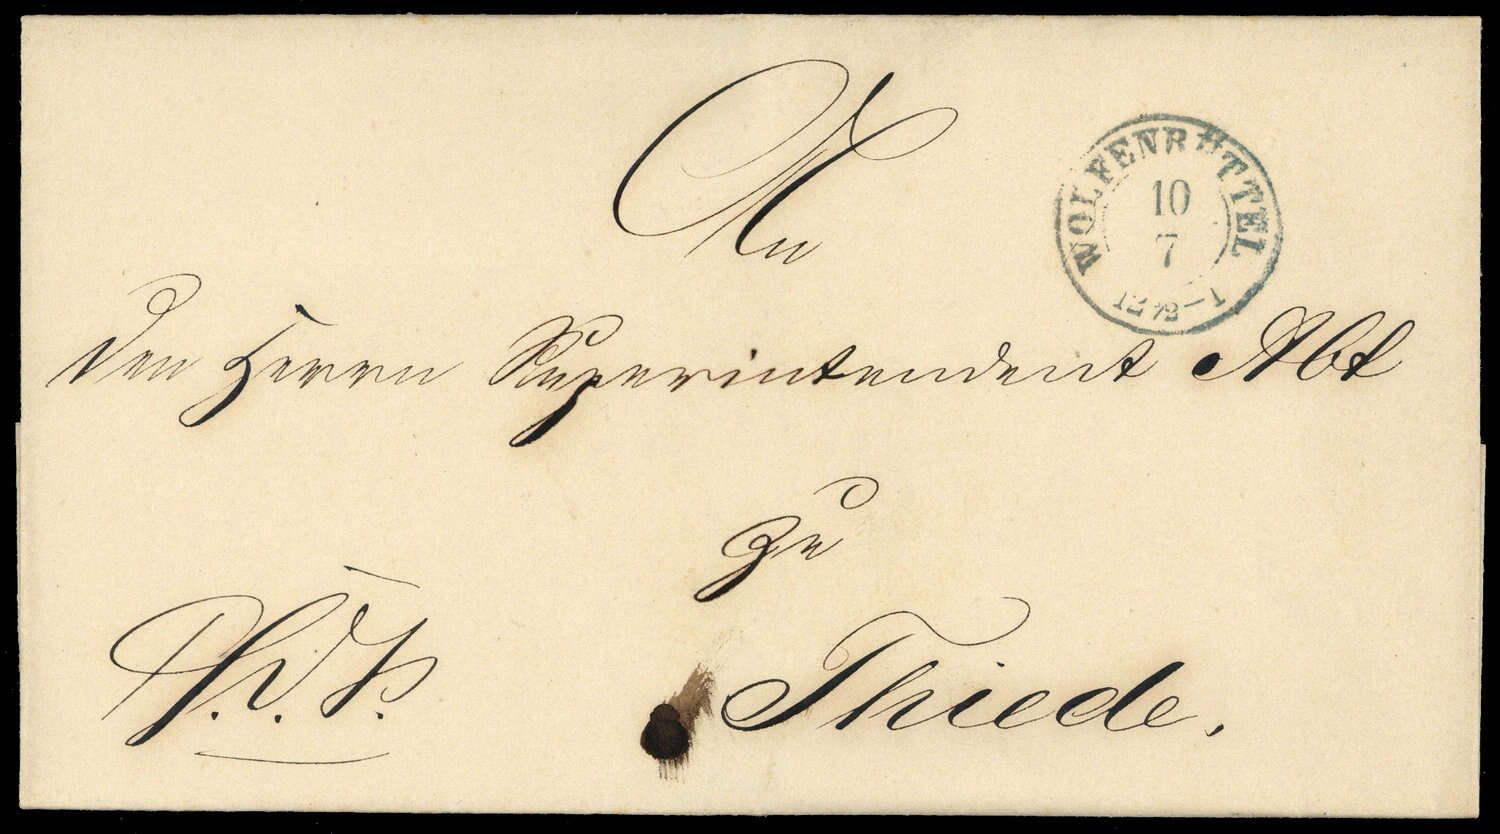 An
WOLFENBÜTTEL
10
7
12½-1
den Herrn Superintendent Abt
zu
Thiede.